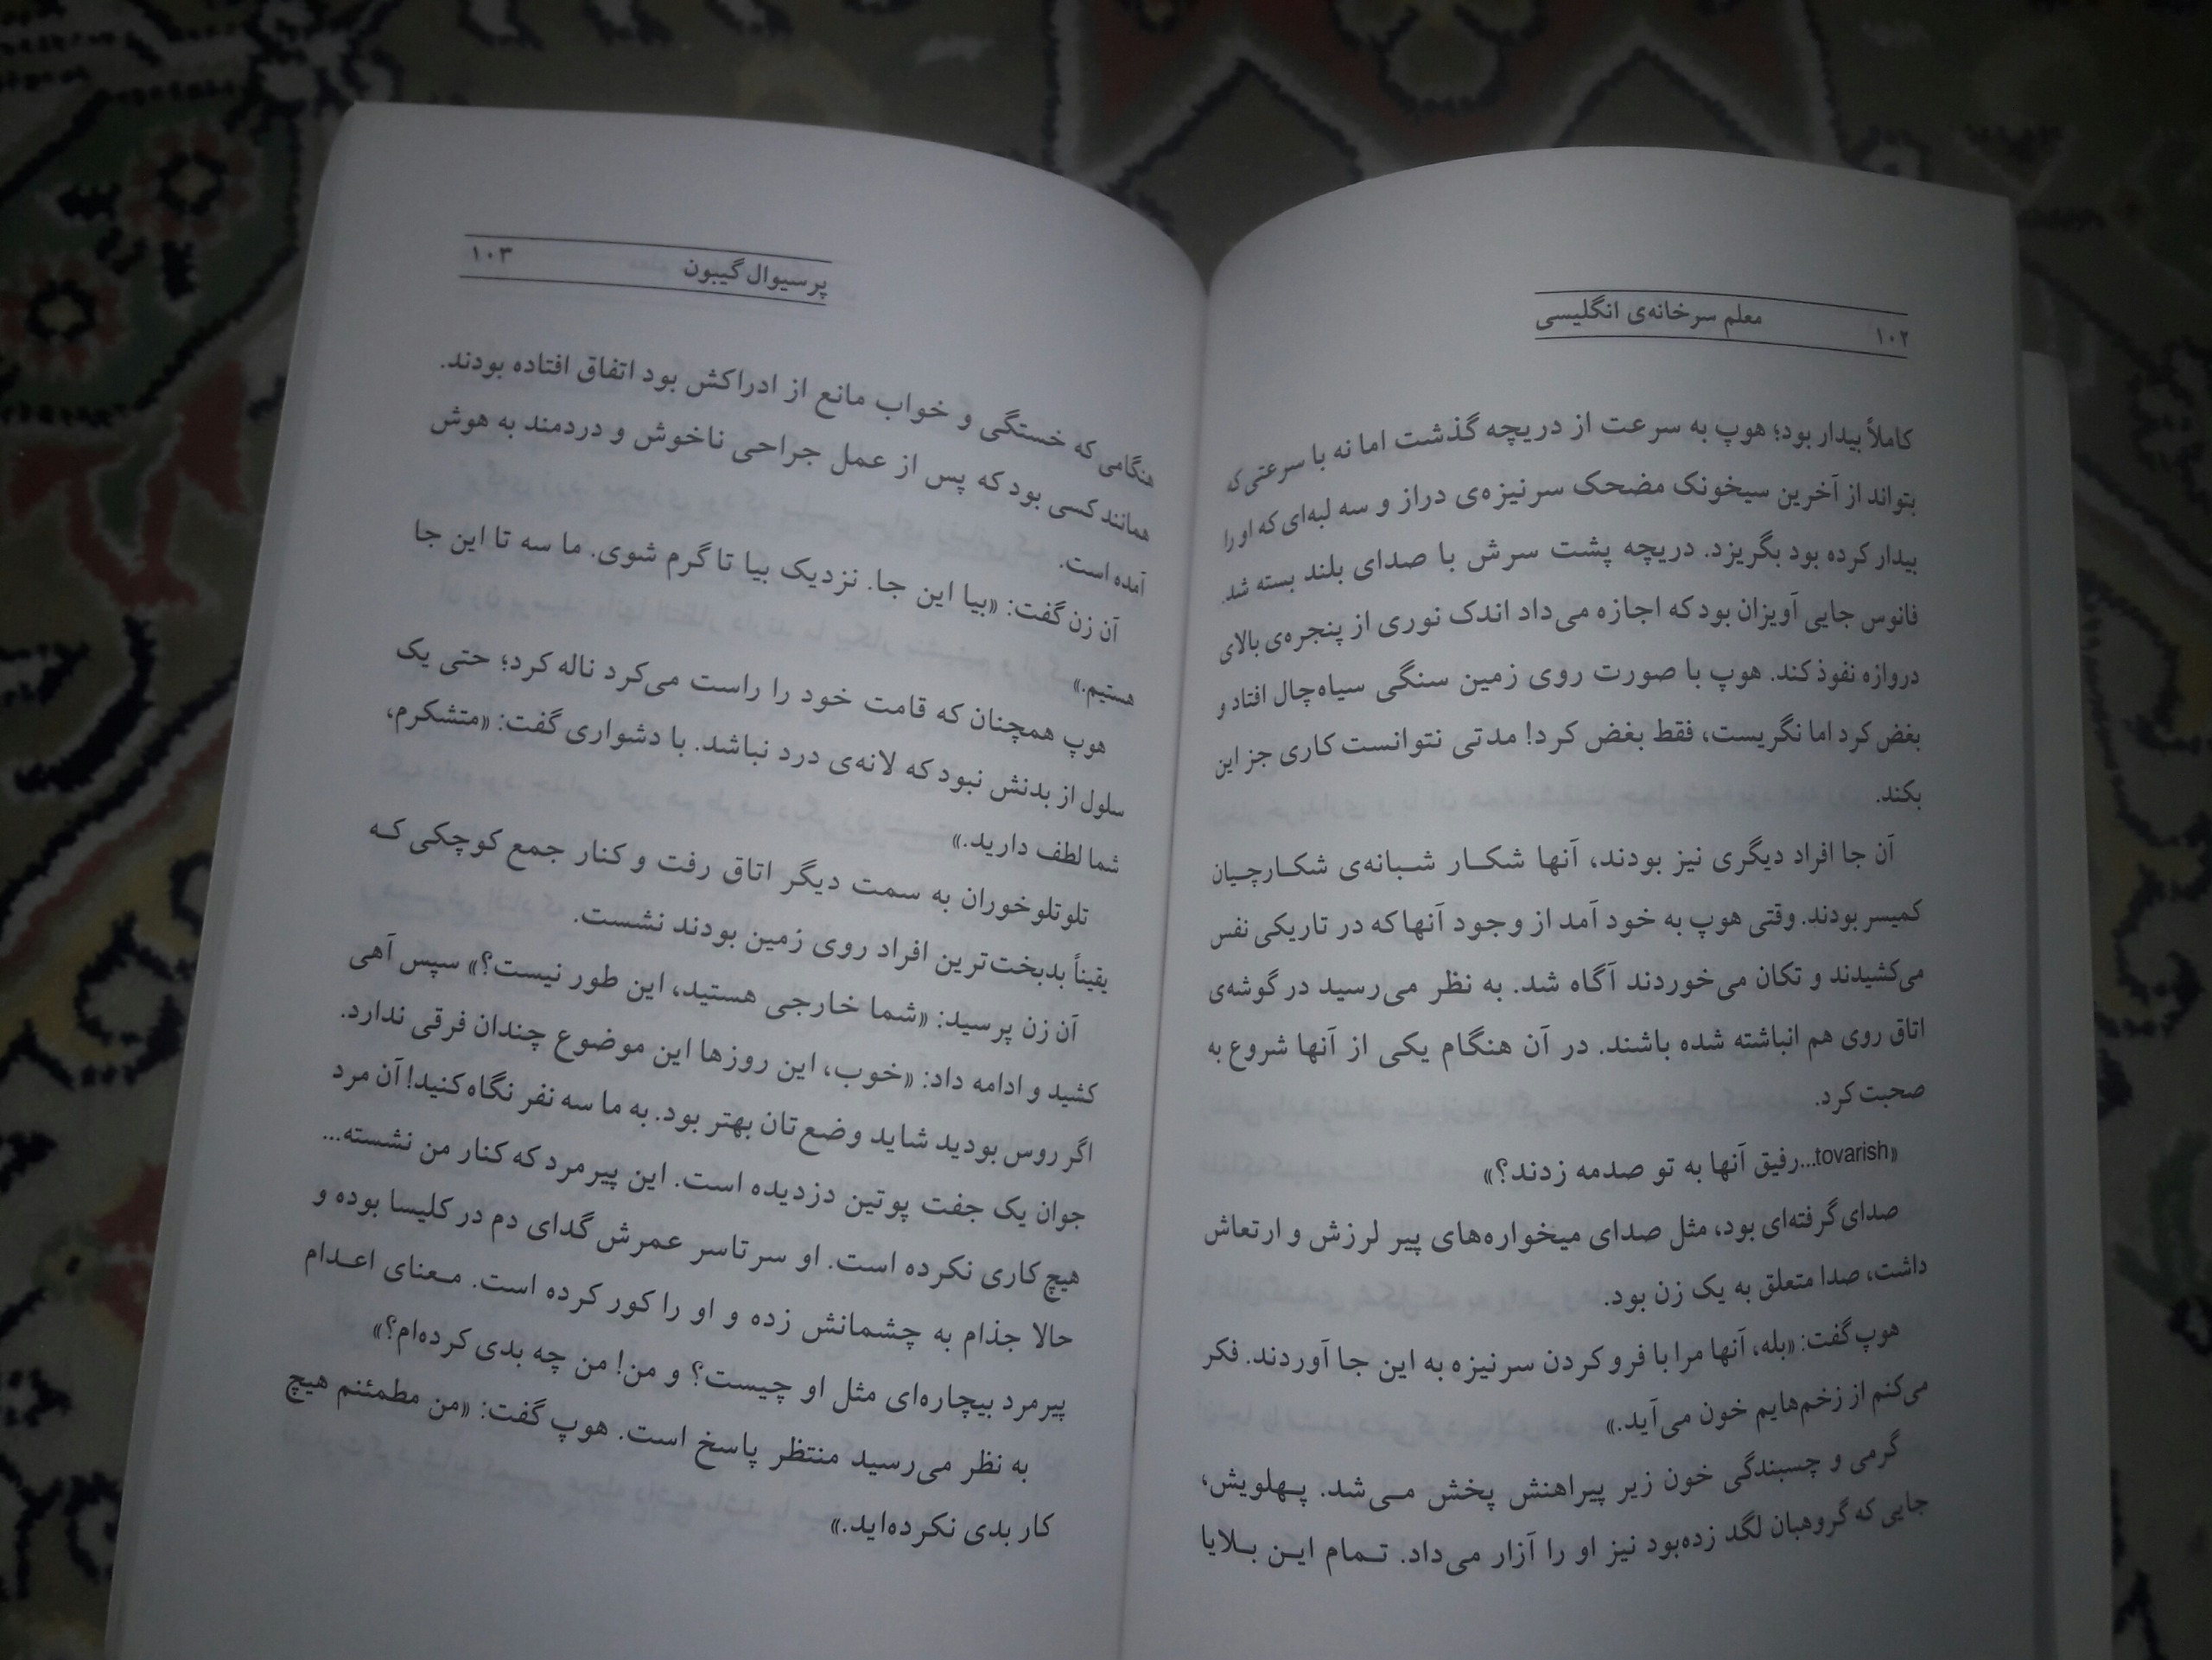 ۱۰۲ معلم سرخانه‌ی انگلیسی
کاملاً بیدار بود؛ هوپ به سرعت از دریچه گذشت اما نه با سرعتی که
بتواند از آخرین سیخونک مضحک سرنیزه‌ی دراز و سه لبه‌ای که او را
بیدار کرده بود بگریزد. دریچه پشت سرش با صدای بلند بسته شد.
فانوس جایی آویزان بود که اجازه می‌داد اندک نوری از پنجره‌ی بالای
دروازه نفوذ کند. هوپ با صورت روی زمین سنگی سیاه‌چال افتاد و
بغض کرد اما نگریست، فقط بغض کرد! مدتی نتوانست کاری جز این
بکند.
آن جا افراد دیگری نیز بودند، آنها شکار شبانه‌ی شکارچیان
کمیسر بودند. وقتی هوپ به خود آمد از وجود آنها که در تاریکی نفس
می‌کشیدند و تکان می‌خوردند آگاه شد. به نظر می‌رسید در گوشه‌ی
اتاق روی هم انباشته شده باشند. در آن هنگام یکی از آنها شروع به
صحبت کرد.
«tovarish...رفیق آنها به تو صدمه زدند؟»
صدای گرفته‌ای بود، مثل صدای میخواره‌های پیر لرزش و ارتعاش
داشت، صدا متعلق به یک زن بود.
هوپ گفت: «بله، آنها مرا با فرو کردن سرنیزه به این جا آوردند. فکر
می‌کنم از زخم‌هایم خون می‌آید.»
گرمی و چسبندگی خون زیر پیراهنش پخش می‌شد. پهلویش،
جایی که گروهبان لگد زده‌بود نیز او را آزار می‌داد. تمام این بلایا
پرسیوال گیبون ۱۰۳
هنگامی که خستگی و خواب مانع از ادراکش بود اتفاق افتاده بودند.
همانند کسی بود که پس از عمل جراحی ناخوش و دردمند به هوش
آمده است.
آن زن گفت: «بیا این جا. نزدیک بیا تا گرم شوی. ما سه تا این جا
هستیم.»
هوپ همچنان که قامت خود را راست می‌کرد ناله کرد؛ حتی یک
سلول از بدنش نبود که لانه‌ی درد نباشد. با دشواری گفت: «متشکرم،
شما لطف دارید.»
تلوتلوخوران به سمت دیگر اتاق رفت و کنار جمع کوچکی که
یقیناً بدبخت‌ترین افراد روی زمین بودند نشست.
آن زن پرسید: «شما خارجی هستید، این طور نیست؟» سپس آهی
کشید و ادامه داد: «خوب، این روزها این موضوع چندان فرقی ندارد.
اگر روس بودید شاید وضع‌تان بهتر بود. به ما سه نفر نگاه کنید! آن مرد
جوان یک جفت پوتین دزدیده است. این پیرمرد که کنار من نشسته...
هیچ کاری نکرده است. او سرتاسر عمرش گدای دم در کلیسا بوده و
حالا جذام به چشمانش زده و او را کور کرده است. معنای اعدام
پیرمرد بیچاره‌ای مثل او چیست؟ و من! من چه بدی کرده‌ام؟»
به نظر می‌رسید منتظر پاسخ است. هوپ گفت: «من مطمئنم هیچ
کار بدی نکرده‌اید.»